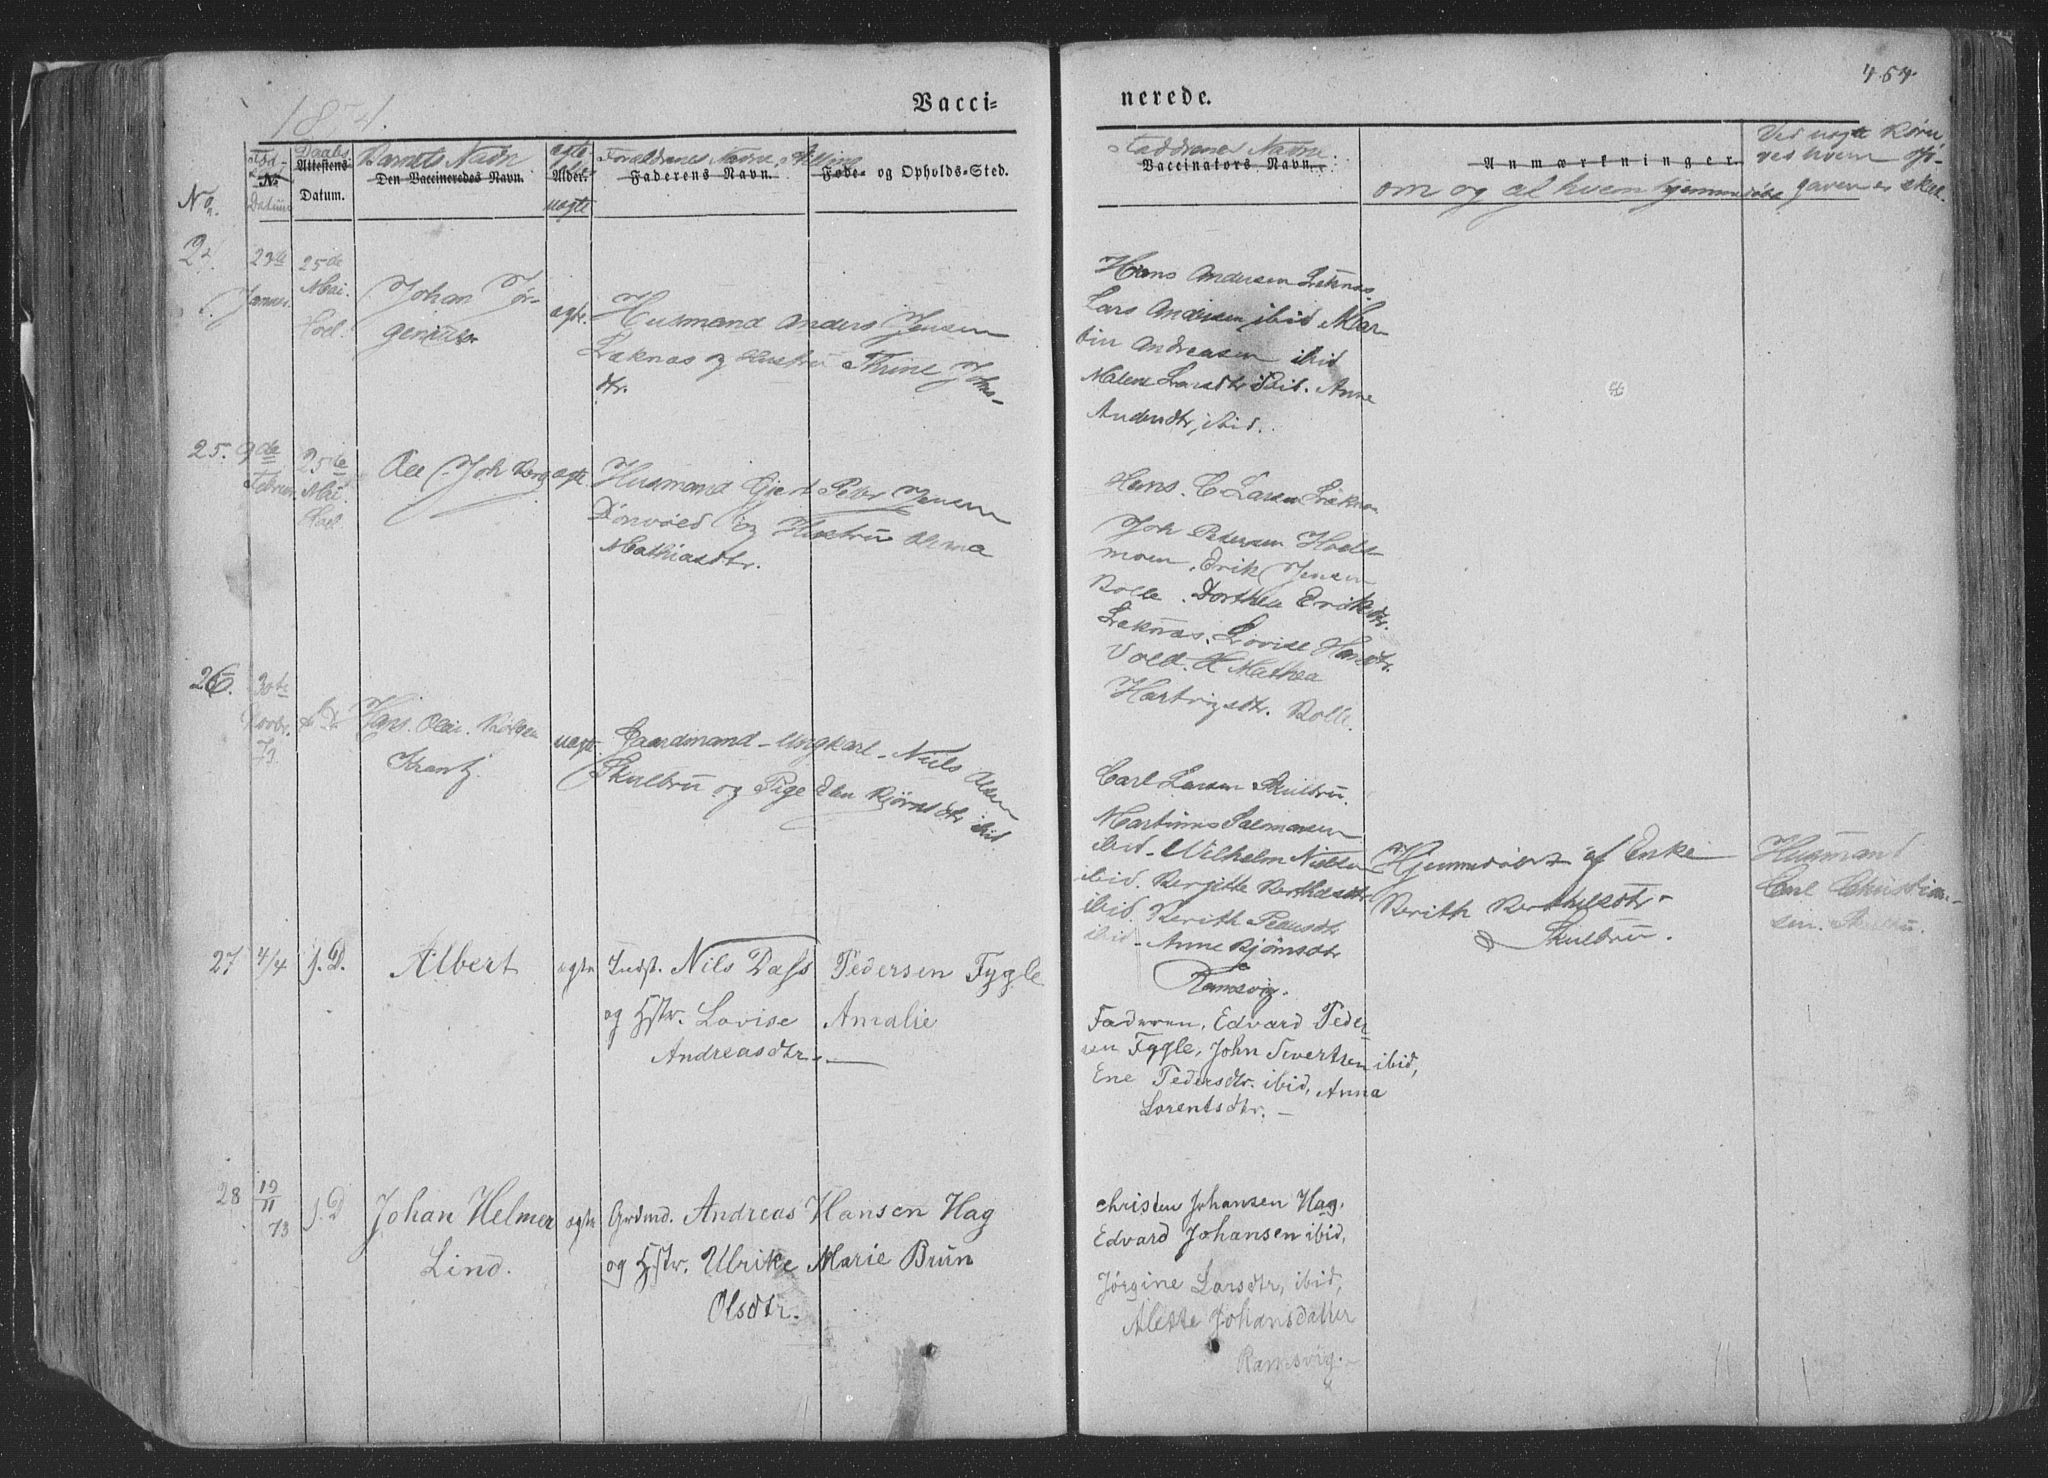 454.
1874.
Vacci=
nerede.
No
Fød-
No.
Datum
Daabs
Attestens
Datum.
Barnets Navn
Den Vaccineredes Navn.
ægte
Alder.
uægte
Forældrenes Navne, Stilling
Faderens Navn.
Føde- og Opholds-Sted.
Faddernes Navne
Vaccinators Navn.
Anmærkninger.
om og af hvem hjemmedøbt
Ved uægte Børn
ved hvem Op-
gaven er skeet.
24.
23de
Januar.
25de
Mai.
Hoel.
Johan Jør-
gen
ægte.
Husmand Anders Jensen
Læknæs og Hustru Thrine Johns-
dtr.
Hans Andersen Leknæs.
Lars Andersen ibid Mar-
tin Andreasen ibid
Malene Larsdtr ibid. Anne
Andersdtr, ibid.
25.
9de
Februar.
25de
Mai.
Hoel.
Ole Joh Berg
ægte
Husmand Gjert Peter Jensen
og Hustru Anna
Mathiasdtr.
Hans. C Larsen Læknæs
Joh Pedersen Hoels-
moen. Erik Jensen
Bolle. Dorthea Eriksdtr.
Læknæs. Lovise Hansdtr.
Vold. H Mathea
Hartvigsdtr. Bolle.
26.
30te
Novbr.
73
s. D
Hans. Olai.
Krantz.
uægte.
Gaardmand - Ungkarl - Niels Olsen
Skulbru og Pige Elen Bjørnsdtr ibid
Carl Larsen Skulbru.
Martinus Salmonsen
ibid - Wilhelm Nielsen
ibid. Bergitte Berthasdtr
ibid. Berith Pedersdtr
ibid - Anne Bjørnsdtr
Ramsvig.
Hjemmedøbt af Enke
Berith Berthelsdtr -
Skulbru.
Husmand
Carl Christian-
sen. Skulbru.
27
4/4
s. D.
Albert
ægte
Indst. Nils Dass Pedersen Fygle
og Hstr. Lovise Amalie
Andreasdtr. —
Faderen, Edvard Peder-
sen Fygle, John Sivertsen ibid,
Ene Pedersdtr. ibid, Anna
Lorentsdtr. —
28
19
11
73
s. D
Johan Helmer
Lind.
ægte
Grdmd. Andreas Hansen Hag
og Hstr. Ulrike Marie Brun
Olsdtr.
Christen Johansen Hag,
Edvard Johansen ibid,
Jørgine Larsdtr, ibid,
Alette Johansdatter
Ramsvig. —